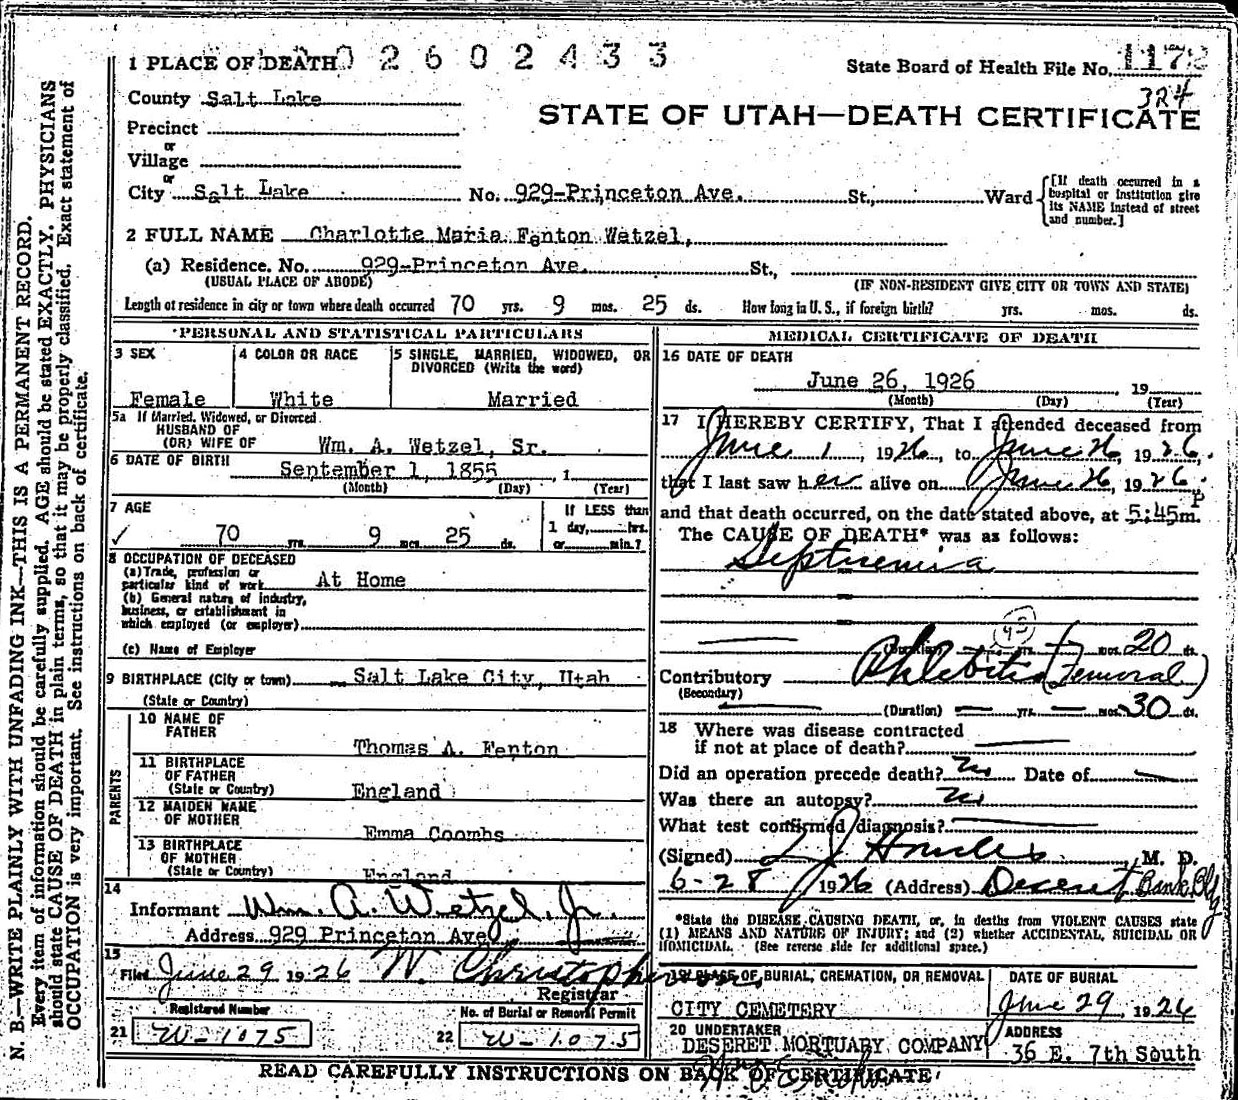 1 PLACE OF DEATH 02602433
State Board of Health File No. 1172
324
STATE OF UTAH—DEATH CERTIFICATE
County Salt Lake
Precinct
or
Village
or
City Salt Lake No. 929-Princeton Ave. St., Ward
[If death occurred in a hospital or institution give its NAME instead of street and number.]
2 FULL NAME Charlotte Maria Fenton Wetzel,
(a) Residence. No. 929-Princeton Ave. St.,
(USUAL PLACE OF ABODE) (IF NON-RESIDENT GIVE CITY OR TOWN AND STATE)
Length of residence in city or town where death occurred 70 yrs. 9 mos. 25 ds. How long in U. S., if foreign birth? yrs. mos. ds.
PERSONAL AND STATISTICAL PARTICULARS
3 SEX
Female
4 COLOR OR RACE
White
5 SINGLE, MARRIED, WIDOWED, OR
DIVORCED (Write the word)
Married
5a If Married, Widowed, or Divorced
HUSBAND OF
(OR) WIFE OF Wm. A. Wetzel, Sr.
6 DATE OF BIRTH September 1, 1855, 1
(Month) (Day) (Year)
7 AGE
70 yrs. 9 mos. 25 ds.
If LESS than
1 day, hrs.
or min.?
8 OCCUPATION OF DECEASED
(a) Trade, profession or
particular kind of work At Home
(b) General nature of industry,
business, or establishment in
which employed (or employer)
(c) Name of Employer
9 BIRTHPLACE (City or town) Salt Lake City, Utah
(State or Country)
PARENTS
10 NAME OF
FATHER
Thomas A. Fenton
11 BIRTHPLACE
OF FATHER
(State or Country) England
12 MAIDEN NAME
OF MOTHER
Emma Coombs
13 BIRTHPLACE
OF MOTHER
(State or Country) England
14
Informant Wm. A. Wetzel, Jr.
Address 929 Princeton Ave
15
Filed June 29 1926 W. Christopherson
Registrar
Registered Number
21 W-1075
No. of Burial or Removal Permit
22 W-1075
MEDICAL CERTIFICATE OF DEATH
16 DATE OF DEATH
June 26, 1926 19
(Month) (Day) (Year)
17 I HEREBY CERTIFY, That I attended deceased from
June 1, 1926, to June 26, 1926,
that I last saw her alive on June 26, 1926
and that death occurred, on the date stated above, at 5:45 P m.
The CAUSE OF DEATH* was as follows:
Septicemia
(Duration) yrs. mos. 20 ds.
Contributory Phlebitis (Femoral)
(Secondary)
(Duration) — yrs. — mos. 30 ds.
18 Where was disease contracted
if not at place of death?
Did an operation precede death? no Date of —
Was there an autopsy? no
What test confirmed diagnosis?
(Signed) M. D.
6-28 1926 (Address) Deseret Bank Bldg
*State the DISEASE CAUSING DEATH, or, in deaths from VIOLENT CAUSES state
(1) MEANS AND NATURE OF INJURY; and (2) whether ACCIDENTAL, SUICIDAL OR
HOMICIDAL. (See reverse side for additional space.)
19 PLACE OF BURIAL, CREMATION, OR REMOVAL
CITY CEMETERY
DATE OF BURIAL
June 29, 1926
20 UNDERTAKER
DESERET MORTUARY COMPANY
ADDRESS
36 E. 7th South
READ CAREFULLY INSTRUCTIONS ON BACK OF CERTIFICATE
N. B.—WRITE PLAINLY WITH UNFADING INK—THIS IS A PERMANENT RECORD.
Every item of information should be carefully supplied. AGE should be stated EXACTLY. PHYSICIANS
should state CAUSE OF DEATH in plain terms, so that it may be properly classified. Exact statement of
OCCUPATION is very important. See instructions on back of certificate.